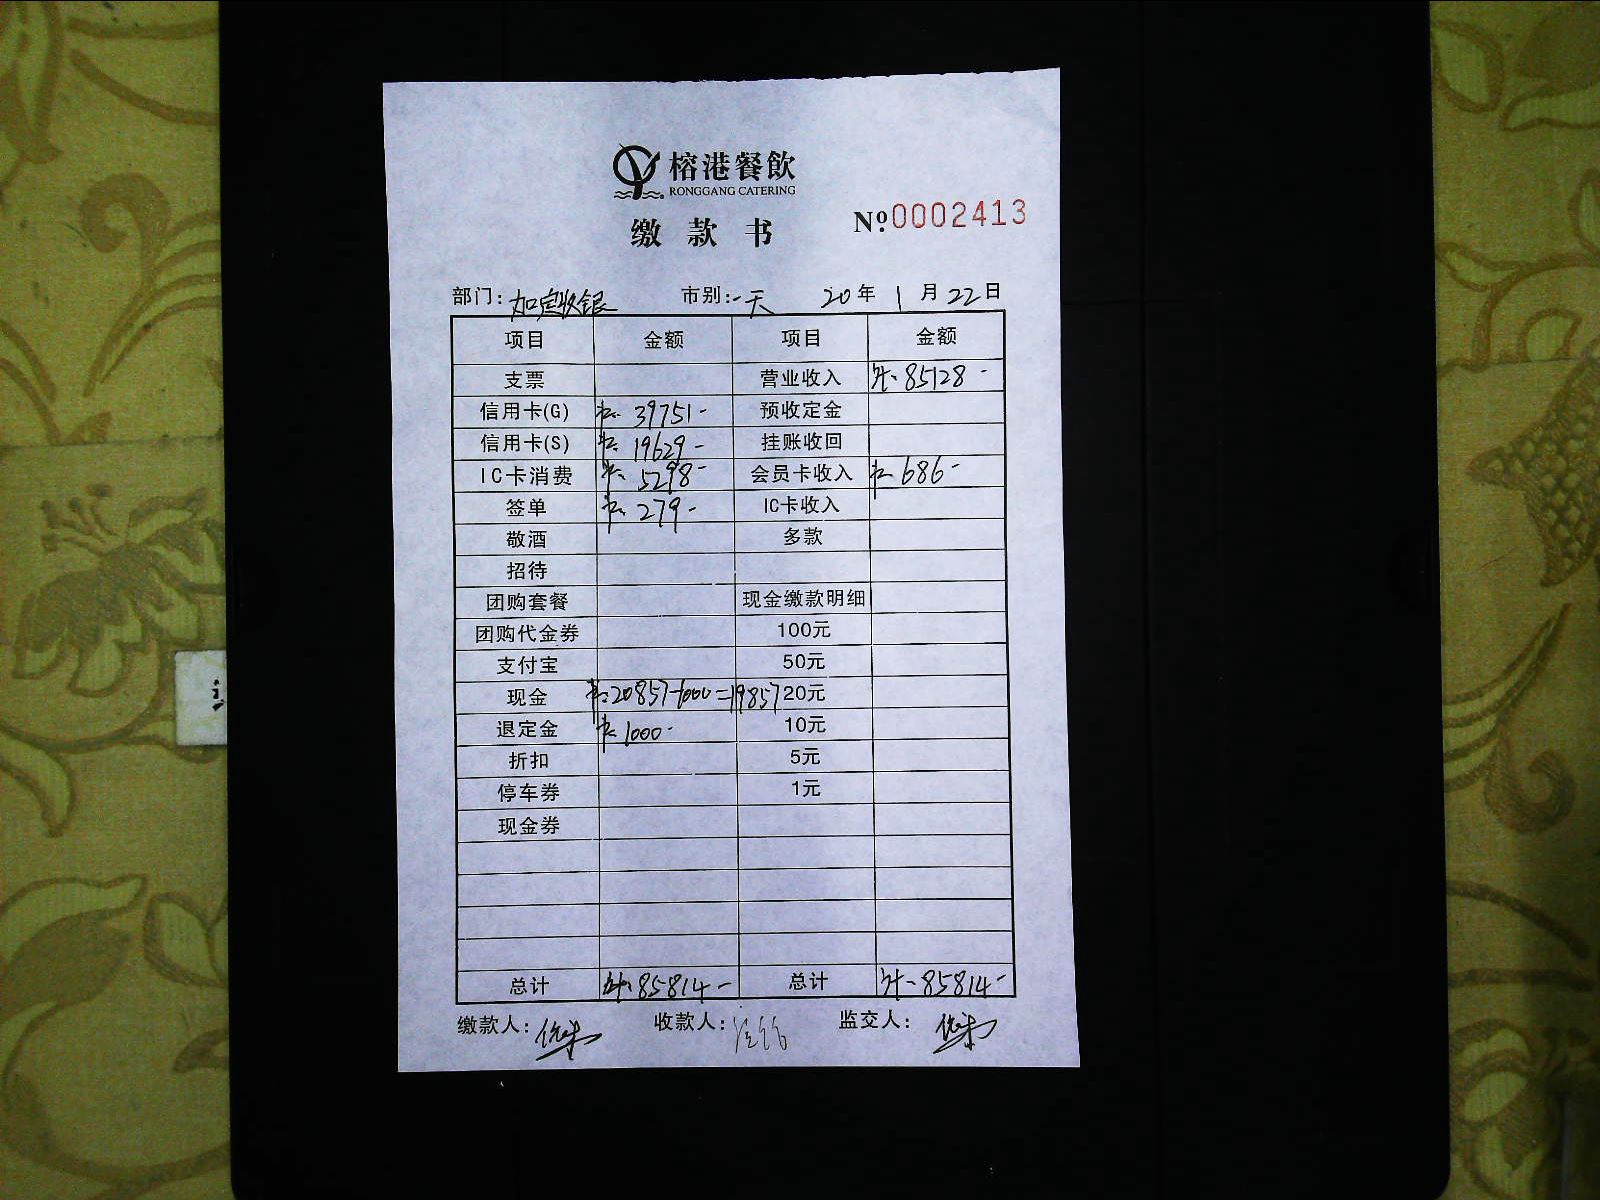 榕港餐飲
RONGGANG CATERING
缴款书 №0002413
部门:加定收银 市别:一天 20年1月22日
项目 金额 项目 金额
支票 营业收入 85128-
信用卡(G) 39751- 预收定金
信用卡(S) 19629- 挂账收回
IC卡消费 5298- 会员卡收入 686-
签单 279- IC卡收入
敬酒 多款
招待
团购套餐 现金缴款明细
团购代金券 100元
支付宝 50元
现金 20857-1000=19857 20元
退定金 1000- 10元
折扣 5元
停车券 1元
现金券
总计 85814- 总计 85814-
缴款人: 收款人: 监交人: